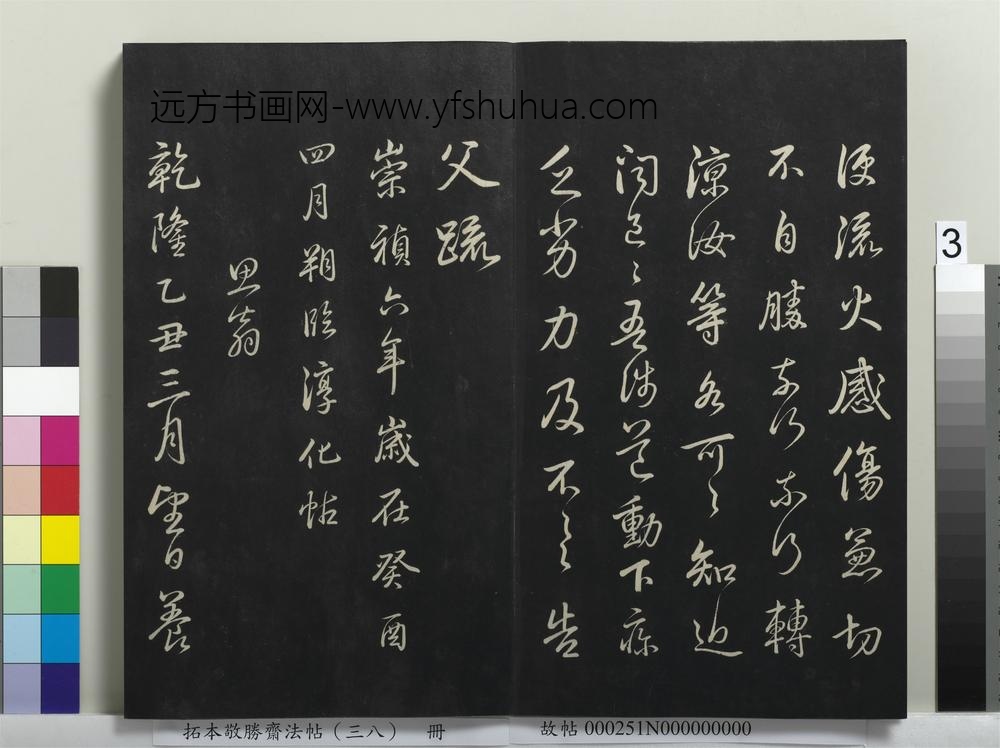 远方书画网-www.yfshuhua.com
便流火感傷兼切
不自勝奈何奈何轉
涼汝等各可可知近
問邑邑吾涉道動下
乏劣力及不一一告
父疏
崇禎六年歲在癸酉
四月朔臨淳化帖
思翁
乾隆乙丑三月望日養
3
拓本敬勝齋法帖（三八） 冊
故帖 000251N000000000